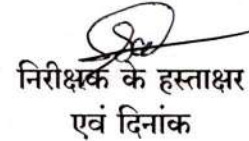 निरीक्षक के हस्ताक्षर
एवं दिनांक